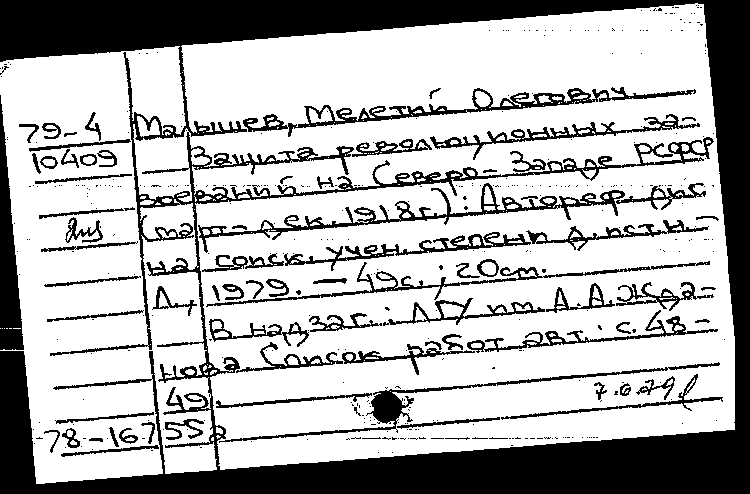 79-4 Малышев, Мелетий Олегович.
10409 Защита революционных за-
воеваний на Северо-Западе РСФСР
(март-дек. 1918г.): Автореф. дис.
на соиск. учен. степени д.ист.н. -
Л., 1979. — 49с.; 20см.
В надзаг.: ЛГУ им. А.А. Жда-
нова. Список работ авт.: с. 48-
49.
7.6.79
78-16755а